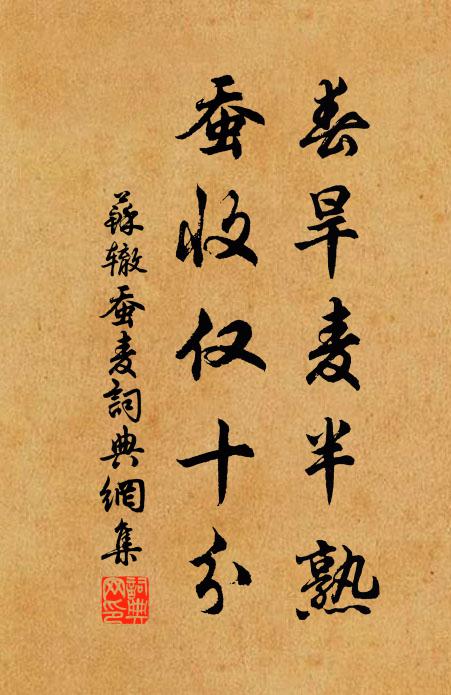 春旱麦半熟
蚕收仅十分
蘇辙蚕麦詞典網集
詞典网印